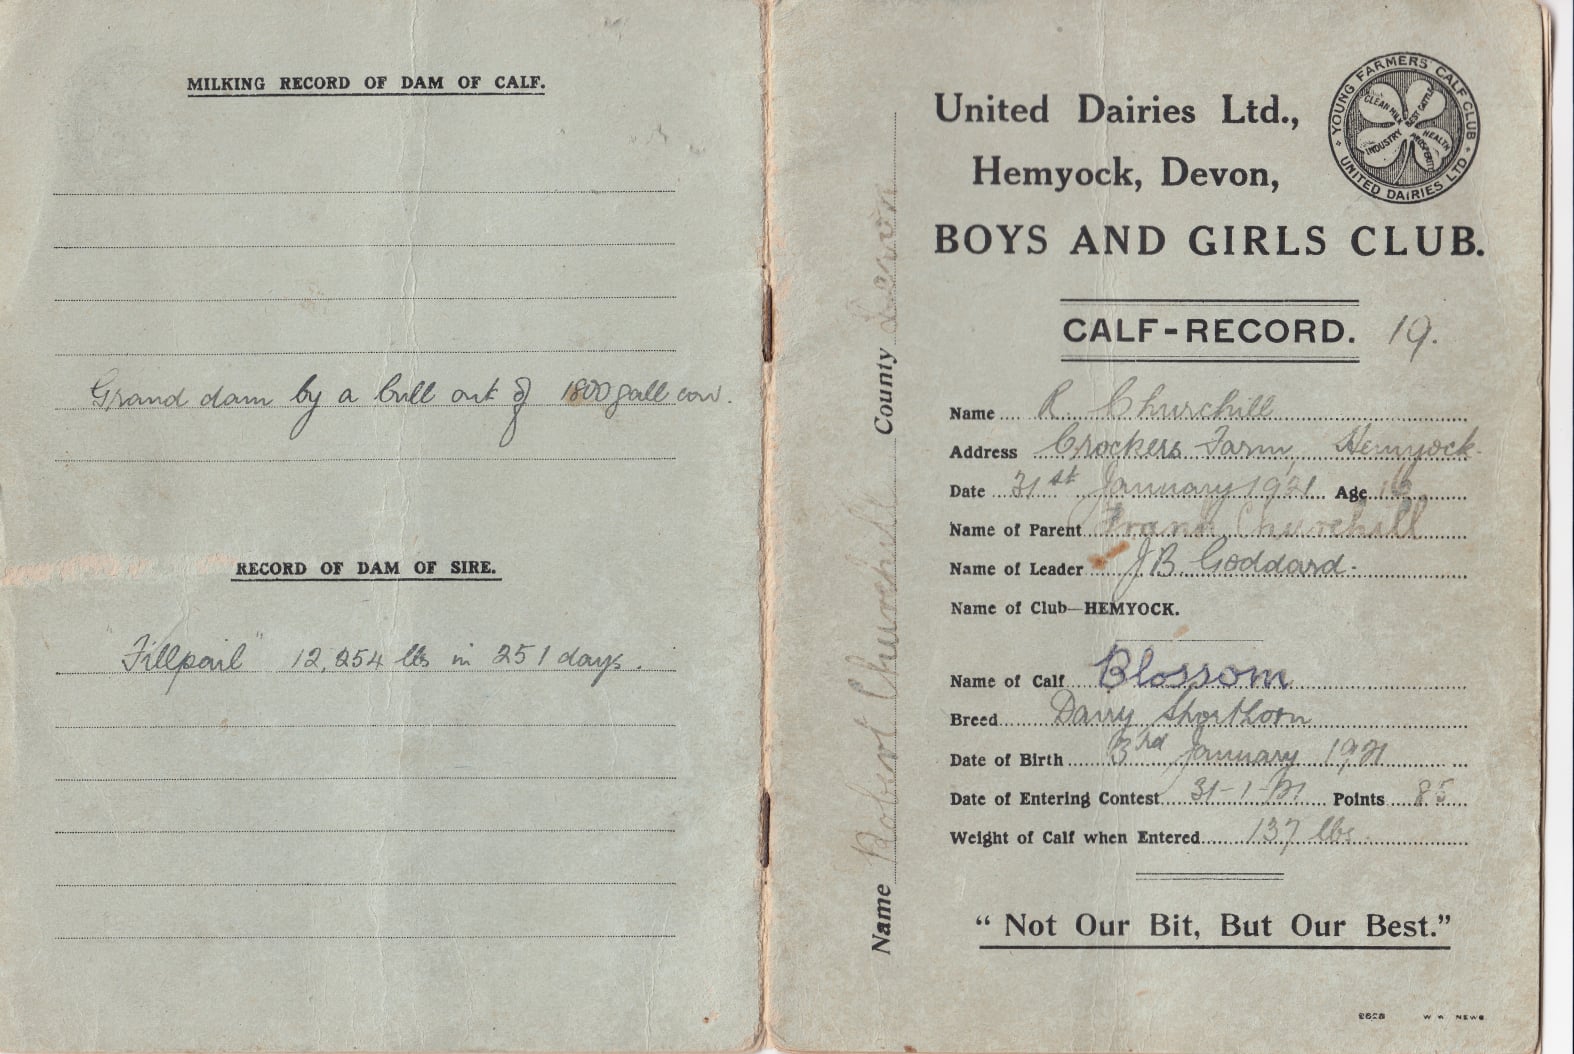 MILKING RECORD OF DAM OF CALF.
Grand dam by a bull out of 1800 gall cow.
RECORD OF DAM OF SIRE.
"Fillpail" 12,254 lbs in 251 days.
Name Robert Churchill County Devon
United Dairies Ltd.,
Hemyock, Devon,
BOYS AND GIRLS CLUB.
YOUNG FARMERS' CALF CLUB
UNITED DAIRIES LTD
CLEAN MILK
BEST CATTLE
INDUSTRY
HEALTH
PROSPERITY
CALF-RECORD. 19.
Name R. Churchill
Address Crockers Farm, Hemyock
Date 31st January 1921 Age
Name of Parent Frank Churchill
Name of Leader J B Goddard.
Name of Club—HEMYOCK.
Name of Calf Blossom
Breed Dairy Shorthorn
Date of Birth 3rd January 1921
Date of Entering Contest 31-1-21 Points 85
Weight of Calf when Entered 137 lbs.
"Not Our Bit, But Our Best."
W. W. NEWS